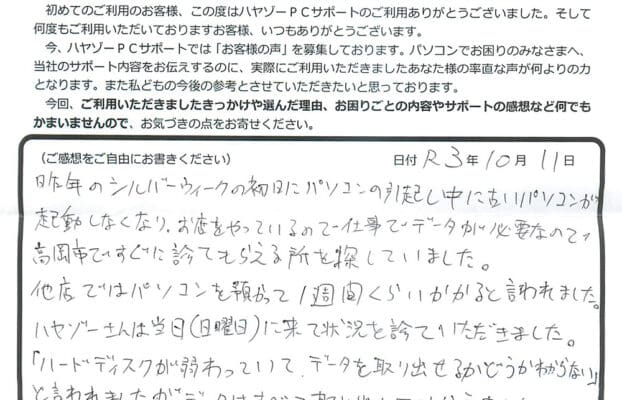 初めてのご利用のお客様、この度はハヤゾーＰＣサポートのご利用ありがとうございました。そして
何度もご利用いただいておりますお客様、いつもありがとうございます。
今、ハヤゾーＰＣサポートでは「お客様の声」を募集しております。パソコンでお困りのみなさまへ、
当社のサポート内容をお伝えするのに、実際にご利用いただきましたあなた様の率直な声が何よりの力
となります。また私どもの今後の参考とさせていただきたいと思っております。
今回、ご利用いただきましたきっかけや選んだ理由、お困りごとの内容やサポートの感想など何でも
かまいませんので、お気づきの点をお寄せください。
（ご感想をご自由にお書きください） 日付 R3年10月11日
昨年のシルバーウィークの初日にパソコンの引起し中に古いパソコンが
起動しなくなり、お店をやっているので仕事でデータが必要なので、
高岡市ですぐに診てもらえる所を探していました。
他店ではパソコンを預かって1週間くらいかかると言われました。
ハヤゾーさんは当日(日曜日)に来て状況を診ていただきました。
「ハードディスクが弱わっていて、データを取り出せるかどうかわからない」
と言われましたがデータはすべて